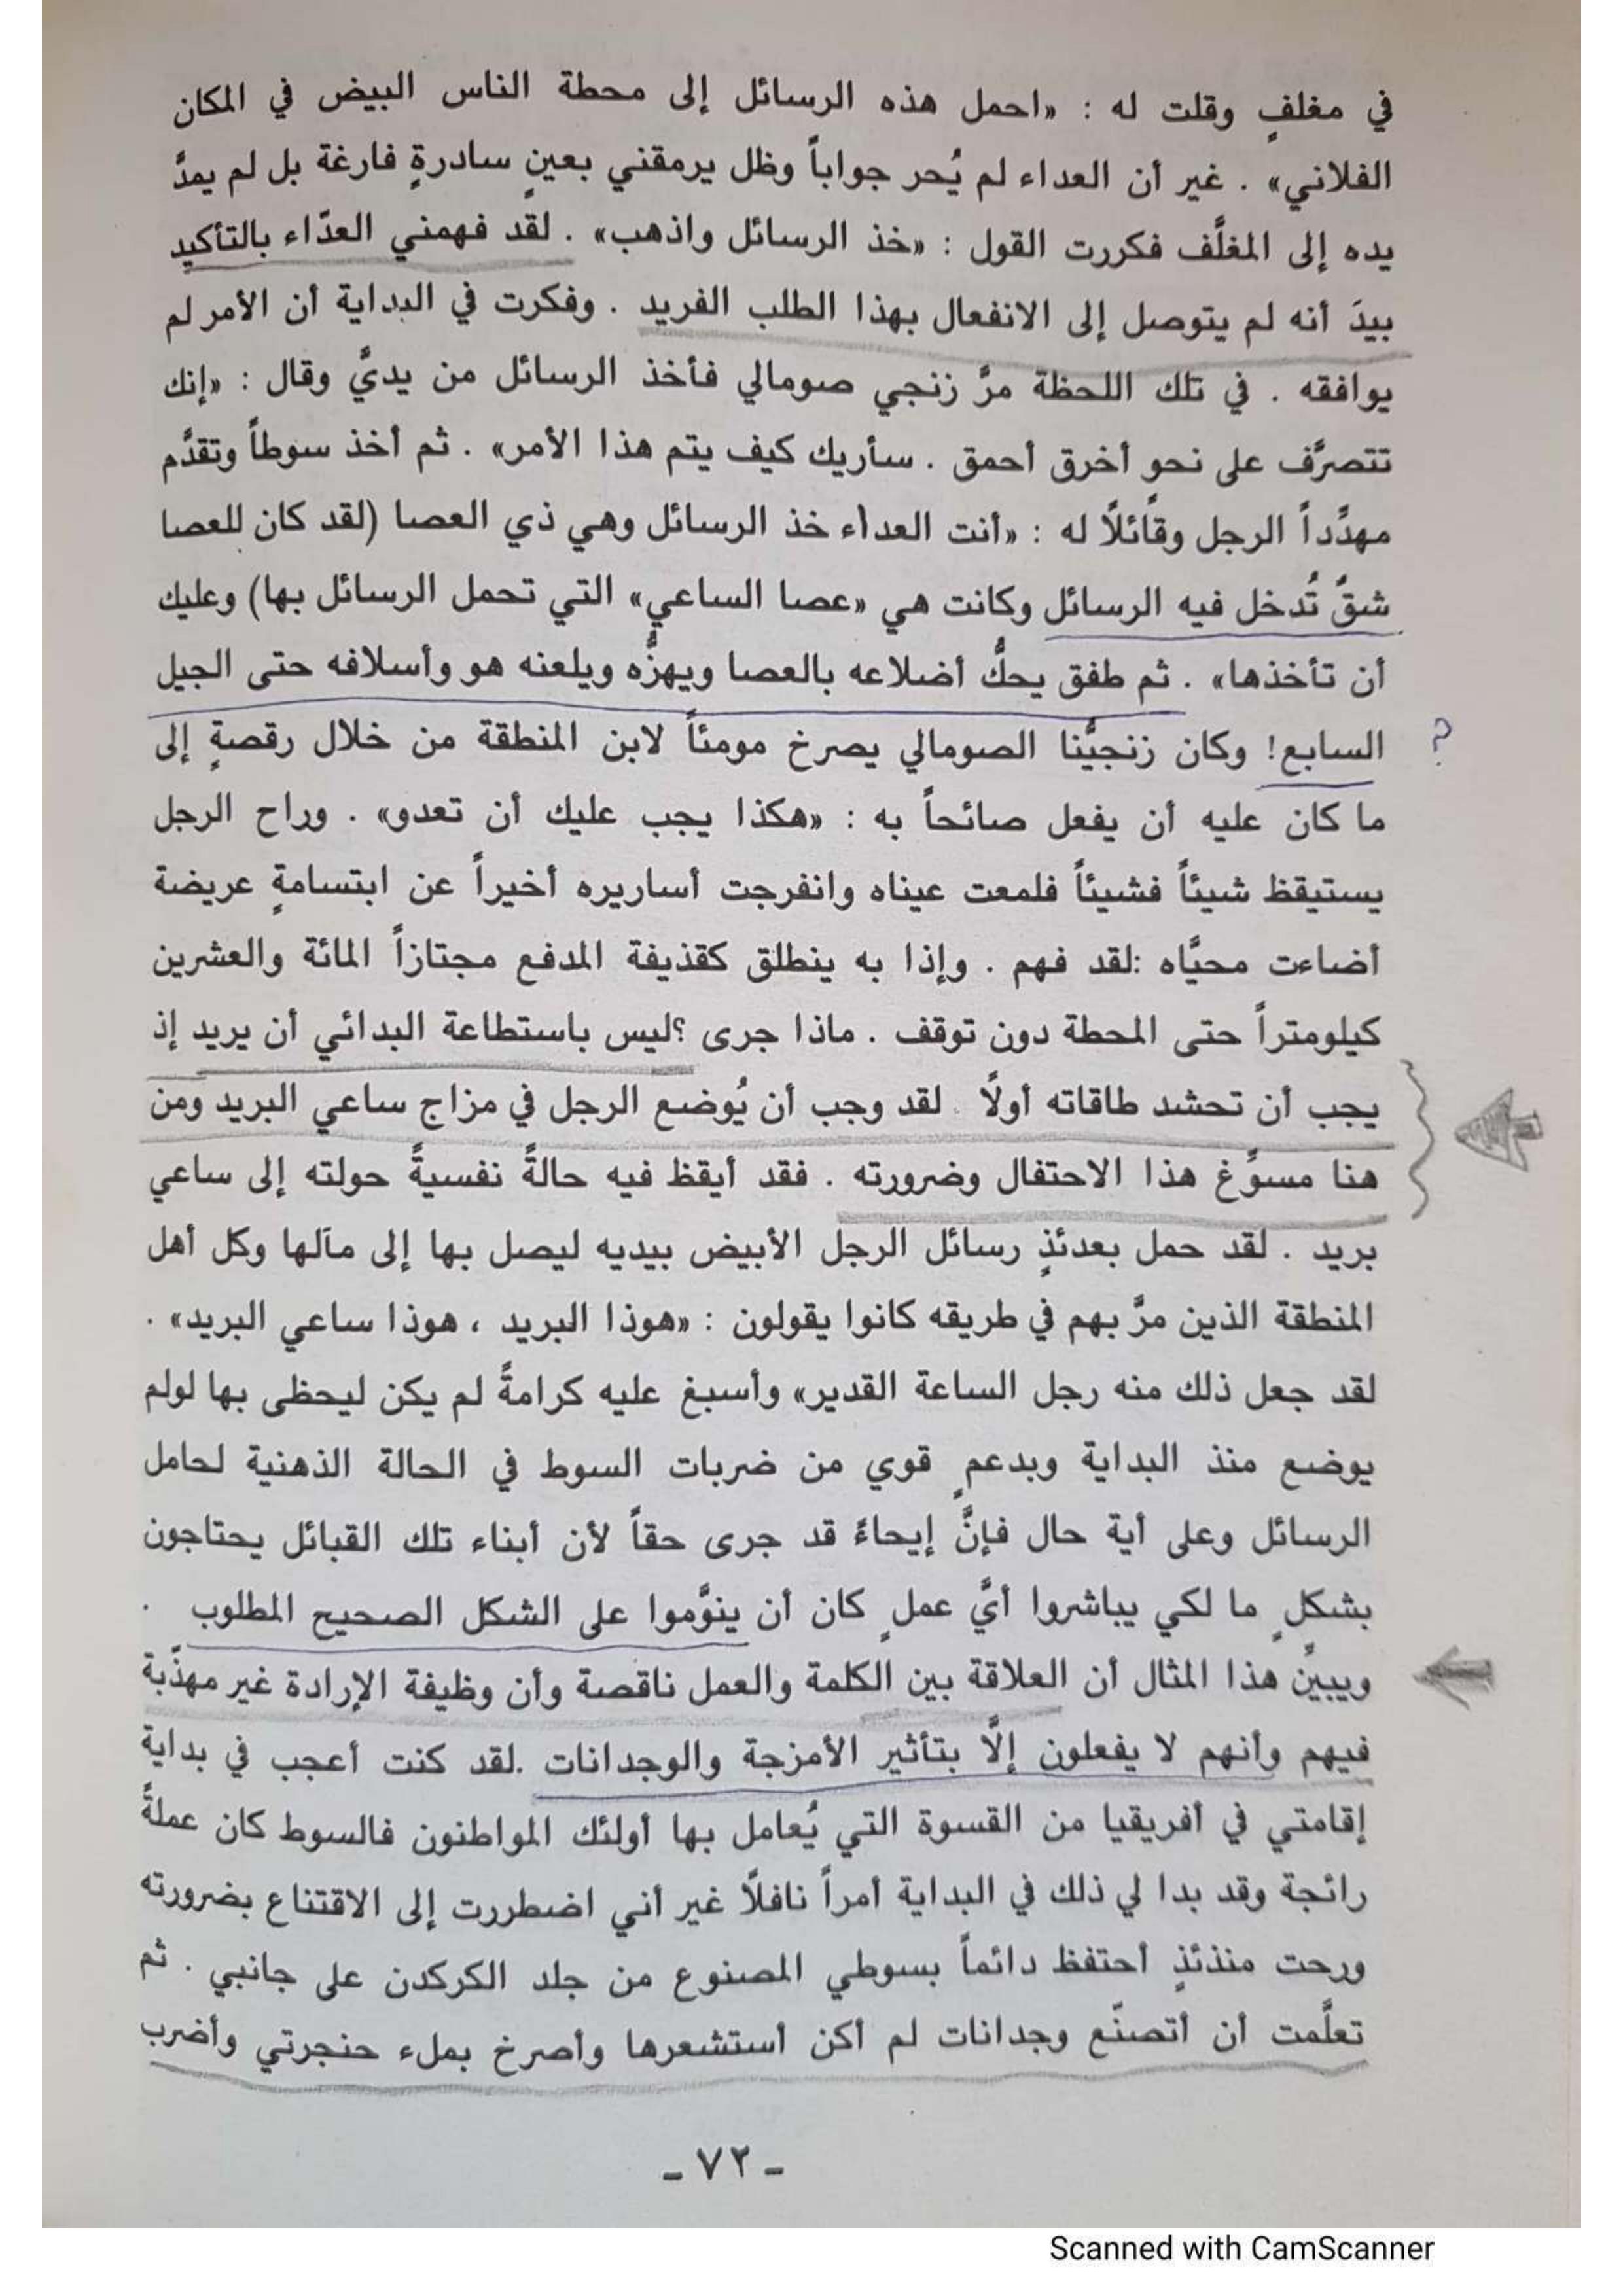 في مغلفٍ وقلت له : «احمل هذه الرسائل إلى محطة الناس البيض في المكان
الفلاني» . غير أن العداء لم يُحر جواباً وظل يرمقني بعينٍ سادرةٍ فارغة بل لم يمدَّ
يده إلى المغلَّف فكررت القول : «خذ الرسائل واذهب» . لقد فهمني العدّاء بالتأكيد
بيدَ أنه لم يتوصل إلى الانفعال بهذا الطلب الفريد . وفكرت في البداية أن الأمر لم
يوافقه . في تلك اللحظة مرَّ زنجي صومالي فأخذ الرسائل من يديَّ وقال : «إنك
تتصرَّف على نحو أخرق أحمق . سأريك كيف يتم هذا الأمر» . ثم أخذ سوطاً وتقدَّم
مهدِّداً الرجل وقائلًا له : «أنت العداء خذ الرسائل وهي ذي العصا (لقد كان للعصا
شقٌ تُدخل فيه الرسائل وكانت هي «عصا الساعي» التي تحمل الرسائل بها) وعليك
أن تأخذها» . ثم طفق يحكُّ أضلاعه بالعصا ويهزُّه ويلعنه هو وأسلافه حتى الجيل
السابع! وكان زنجيُّنا الصومالي يصرخ مومئاً لابن المنطقة من خلال رقصةٍ إلى ?
ما كان عليه أن يفعل صائحاً به : «هكذا يجب عليك أن تعدو» . وراح الرجل
يستيقظ شيئاً فشيئاً فلمعت عيناه وانفرجت أساريره أخيراً عن ابتسامةٍ عريضة
أضاءت محيَّاه :لقد فهم . وإذا به ينطلق كقذيفة المدفع مجتازاً المائة والعشرين
كيلومتراً حتى المحطة دون توقف . ماذا جرى ؟ليس باستطاعة البدائي أن يريد إذ
يجب أن تحشد طاقاته أولًا . لقد وجب أن يُوضع الرجل في مزاج ساعي البريد ومن
هنا مسوِّغ هذا الاحتفال وضرورته . فقد أيقظ فيه حالةً نفسيةً حولته إلى ساعي
بريد . لقد حمل بعدئذٍ رسائل الرجل الأبيض بيديه ليصل بها إلى مآلها وكل أهل
المنطقة الذين مرَّ بهم في طريقه كانوا يقولون : «هوذا البريد ، هوذا ساعي البريد» .
لقد جعل ذلك منه رجل الساعة القدير» وأسبغ عليه كرامةً لم يكن ليحظى بها لولم
يوضع منذ البداية وبدعمٍ قوي من ضربات السوط في الحالة الذهنية لحامل
الرسائل وعلى أية حال فإنَّ إيحاءً قد جرى حقاً لأن أبناء تلك القبائل يحتاجون
بشكلٍ ما لكي يباشروا أيَّ عملٍ كان أن ينوَّموا على الشكل الصحيح المطلوب .
ويبينِّ هذا المثال أن العلاقة بين الكلمة والعمل ناقصة وأن وظيفة الإرادة غير مهذّبة
فيهم وأنهم لا يفعلون إلَّا بتأثير الأمزجة والوجدانات .لقد كنت أعجب في بداية
إقامتي في أفريقيا من القسوة التي يُعامل بها أولئك المواطنون فالسوط كان عملةً
رائجة وقد بدا لي ذلك في البداية أمراً نافلًا غير أني اضطررت إلى الاقتناع بضرورته
ورحت منذئذٍ أحتفظ دائماً بسوطي المصنوع من جلد الكركدن على جانبي . ثم
تعلَّمت أن أتصنّع وجدانات لم أكن أستشعرها وأصرخ بملء حنجرتي وأضرب
- ٧٢ -
Scanned with CamScanner